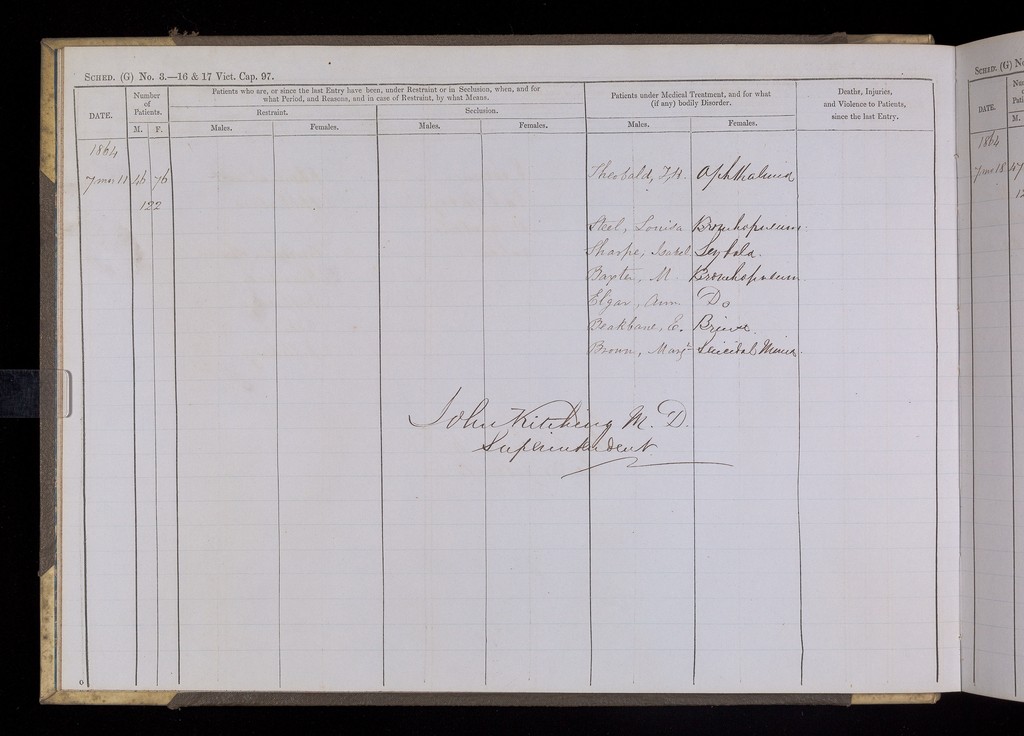 SCHED. (G) No. 3.—16 & 17 Vict. Cap. 97.
DATE.
Number
of
Patients.
M. F.
Patients who are, or since the last Entry have been, under Restraint or in Seclusion, when, and for
what Period, and Reasons, and in case of Restraint, by what Means.
Restraint.
Seclusion.
Males. Females. Males. Females.
Patients under Medical Treatment, and for what
(if any) bodily Disorder.
Males. Females.
Deaths, Injuries,
and Violence to Patients,
since the last Entry.
1864
7 mo. 11 46 76 Theobald, J.H. Ophthalmia
122
Steel, Louisa Bronchopneum.
Sharpe, Isabel
Baxter, M Bronchopneum
Elgar, Ann. Do
Beakbane, E. Bruise.
Brown, Margt Suicidal Mania.
John Kitching M. D.
Superintendent
SCHED. (G) No
DATE.
M.
1864
7 mo. 18 47